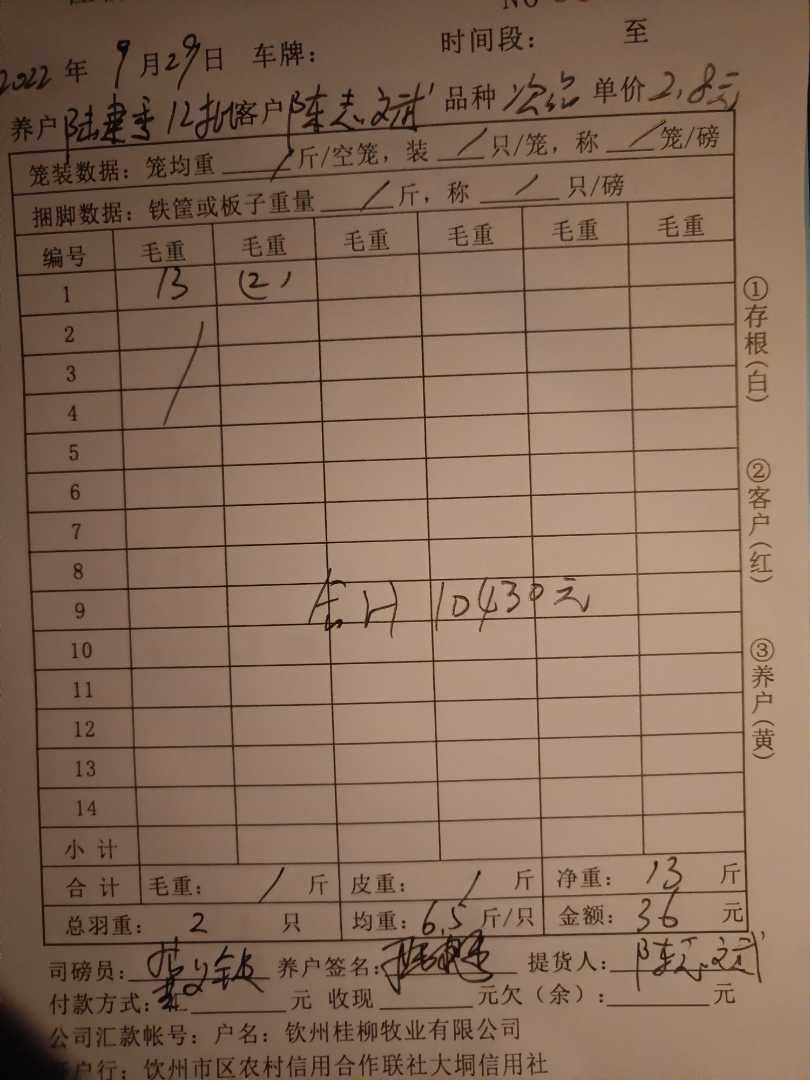 NO
2022 年 9 月 29 日 车牌： 时间段： 至
养户 陆 12批 客户 陈志文武 品种 次品 单价 2.8元
笼装数据：笼均重 / 斤/空笼，装 / 只/笼，称 / 笼/磅
捆脚数据：铁筐或板子重量 / 斤，称 / 只/磅
编号 毛重 毛重 毛重 毛重 毛重 毛重
1 13 (2)
2
3
4
5
6
7
8
9
合计 10430元
10
11
12
13
14
小 计
合 计 毛重： / 斤 皮重： / 斤 净重： 13 斤
总羽重： 2 只 均重：6.5 斤/只 金额：36 元
司磅员： 养户签名： 提货人：陈志文武
付款方式： 元 收现 元欠（余）： 元
公司汇款帐号：户名：钦州桂柳牧业有限公司
户行：钦州市区农村信用合作联社大垌信用社
①存根（白）
②客户（红）
③养户（黄）